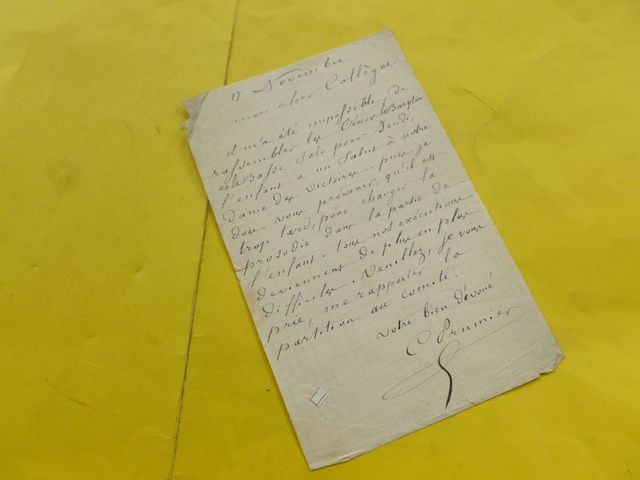 17 Novembre
mon cher Collègue
il m'a été impossible de
rassembler les Ténor & Baryton
et la Basse Solo pour Jeudi,
l'enfant a un Salut à notre
dame des victoires - puis je
dois vous prévenir, qu'il est
trop tard, pour changer la
prosodie dans la partie de
l'enfant. tous nos exécutions
deviennent de plus en plus
difficiles. Veuillez, je vous
prie, me rapporter la
partition au Comité.
votre bien dévoué
C Prumier